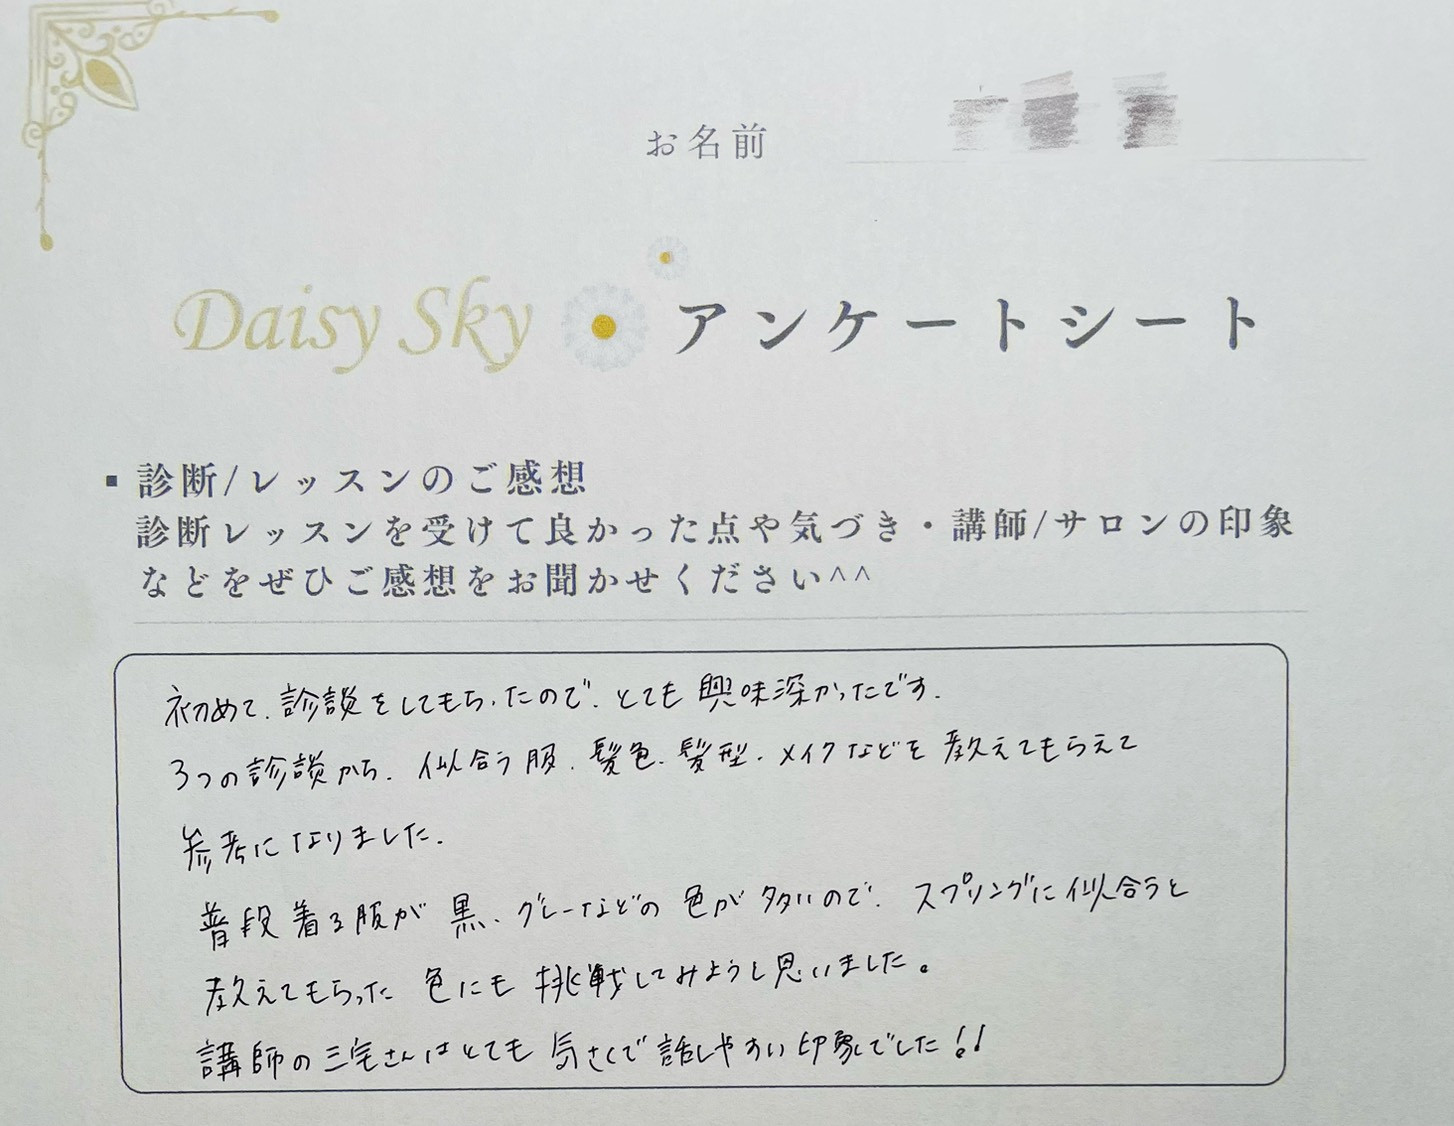 お名前
Daisy Sky アンケートシート
▪診断/レッスンのご感想
診断レッスンを受けて良かった点や気づき・講師/サロンの印象
などをぜひご感想をお聞かせください^^
初めて、診談をしてもらったので、とても興味深かったです.
3つの診談から、似合う服、髪色、髪型、メイクなどを教えてもらえて
参考になりました.
普段着る服が黒、グレーなどの色が多いので、スプリングに似合うと
教えてもらった色にも挑戦してみようし思いました。
講師の三宅さんはとても気さくで話しやすい印象でした!!